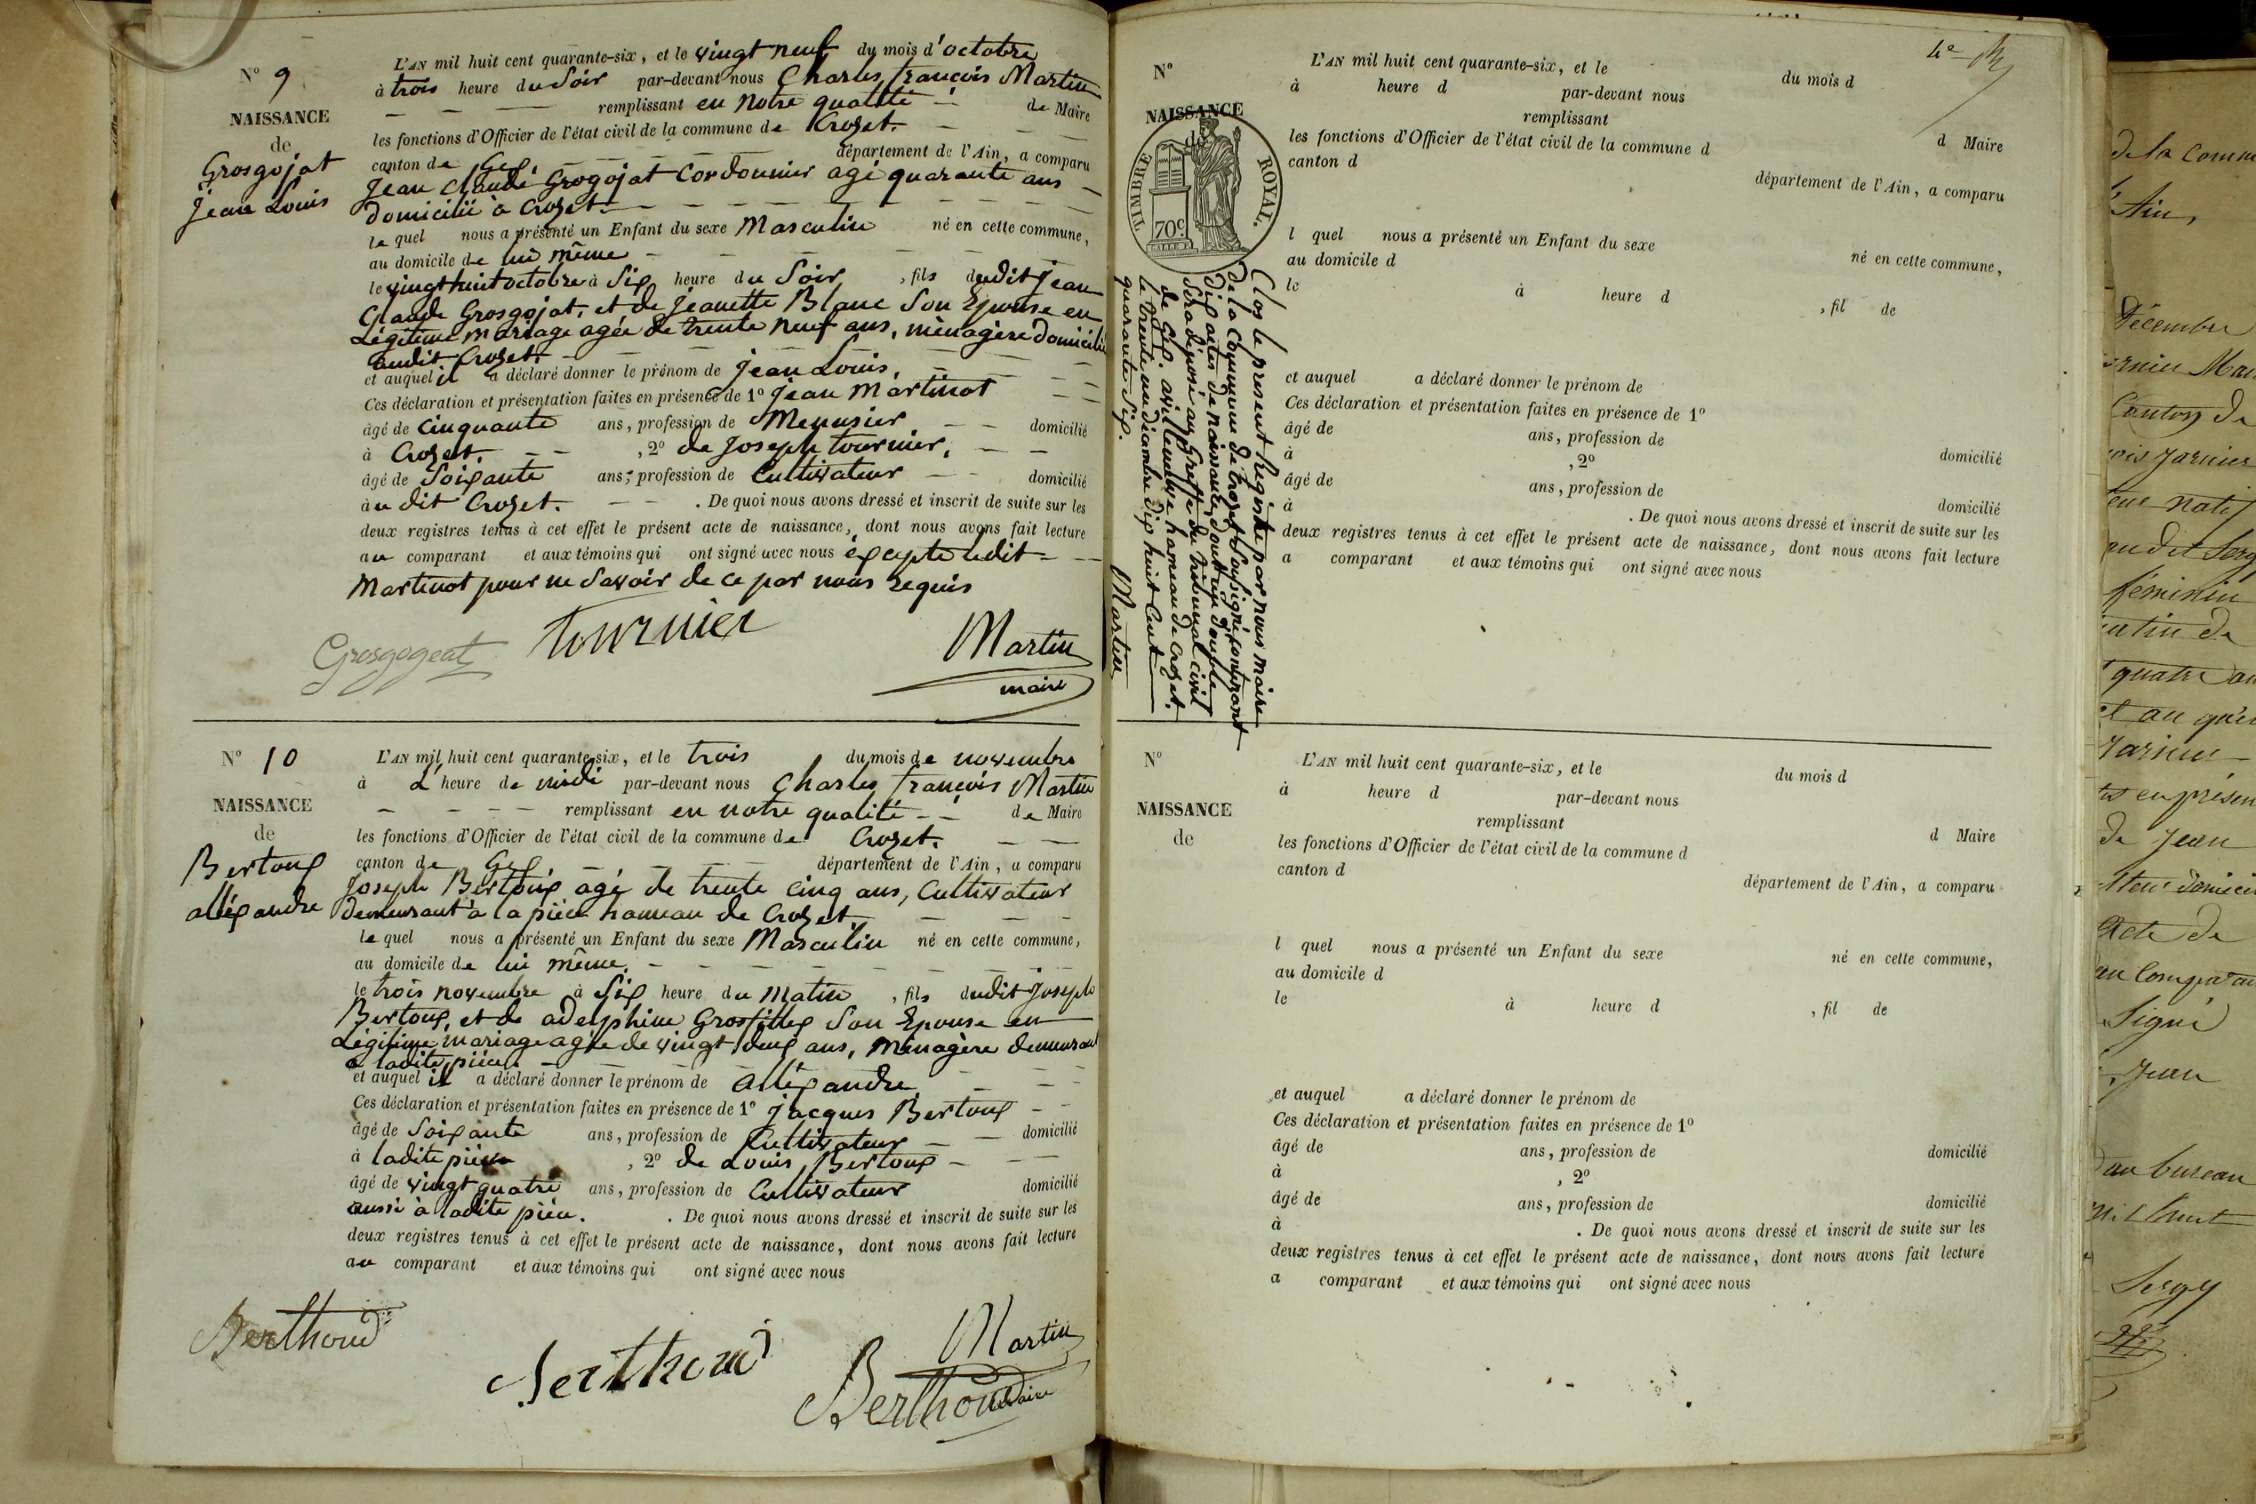 N° 9
NAISSANCE
de
Grosgojat
Jean Louis
L'AN mil huit cent quarante-six, et le vingt neuf du mois d'octobre
à trois heure du Soir par-devant nous Charles françois Martin
remplissant en notre qualité de Maire
les fonctions d'Officier de l'état civil de la commune de Crozet.
canton de Gex. département de l'Ain, a comparu
Jean Claude Grogojat Cordonnier agé quarante ans
domicilié à Crozet.
le quel nous a présenté un Enfant du sexe Masculin né en cette commune,
au domicile de lui même
le vingt huit octobre à Six heure du Soir, fils dudit Jean
Claude Grosgojat, et de Jeanette Blanc Son Epouse en
Légitime mariage agée de trente neuf ans, ménagère domicilié
audit Crozet.
et auquel il a déclaré donner le prénom de Jean Louis.
Ces déclaration et présentation faites en présence de 1° Jean Martinot
âgé de Cinquante ans, profession de Menusier domicilié
à Crozet. , 2° de Joseph tournier,
âgé de Soixante ans, profession de Cultivateur domicilié
au dit Crozet. . De quoi nous avons dressé et inscrit de suite sur les
deux registres tenus à cet effet le présent acte de naissance, dont nous avons fait lecture
au comparant et aux témoins qui ont signé avec nous éxcepté ledit
Martinot pour ne Savoir de ce par nous requis
Grosgogeat tournier Martin
maire
N° 10
NAISSANCE
de
Bertoux
alléxandre
L'AN mil huit cent quarante-six, et le trois du mois de novembre
à l' heure de midi par-devant nous Charles françois Martin
remplissant en notre qualité de Maire
les fonctions d'Officier de l'état civil de la commune de Crozet.
canton de Gex. département de l'Ain, a comparu
Joseph Bertoux agé de trente cinq ans, Cultivateur
demeurant à la pièce hameau de Crozet.
le quel nous a présenté un Enfant du sexe Masculin né en cette commune,
au domicile de lui même.
le trois novembre à Six heure du Matin, fils dudit Joseph
Bertoux, et de adelphine Grosfillex Son Epouse en
Légitime mariage agée de vingt deux ans, Ménagère demeurant
à ladite pièce.
et auquel il a déclaré donner le prénom de alléxandre,
Ces déclaration et présentation faites en présence de 1° Jacques Bertoux
âgé de Soixante ans, profession de Cultivateur domicilié
à ladite pièce , 2° de Louis Bertoux
âgé de vingt quatre ans, profession de Cultivateur domicilié
aussi à ladite pièce. . De quoi nous avons dressé et inscrit de suite sur les
deux registres tenus à cet effet le présent acte de naissance, dont nous avons fait lecture
au comparant et aux témoins qui ont signé avec nous
Berthoud Berthoud Martin
Berthoud Maire
4e
N°
NAISSANCE
de
TIMBRE ROYAL.
70c
Clos le present Registre par nous maire
de la Commune de Crozet Soussigné, contenant
dix actes de naissance, dont un double
Sera déposé au Greffe du tribunal civil
de Gex. a villeneuve hameau de Crozet.
le trente un décembre dix huit Cent
quarante Six. Martin
L'AN mil huit cent quarante-six, et le du mois d
à heure d par-devant nous
remplissant d Maire
les fonctions d'Officier de l'état civil de la commune d
canton d département de l'Ain, a comparu
l quel nous a présenté un Enfant du sexe né en cette commune,
au domicile d
le à heure d , fil de
et auquel a déclaré donner le prénom de
Ces déclaration et présentation faites en présence de 1°
âgé de ans, profession de domicilié
à , 2°
âgé de ans, profession de domicilié
à . De quoi nous avons dressé et inscrit de suite sur les
deux registres tenus à cet effet le présent acte de naissance, dont nous avons fait lecture
a comparant et aux témoins qui ont signé avec nous
N°
NAISSANCE
de
L'AN mil huit cent quarante-six, et le du mois d
à heure d par-devant nous
remplissant d Maire
les fonctions d'Officier de l'état civil de la commune d
canton d département de l'Ain, a comparu
l quel nous a présenté un Enfant du sexe né en cette commune,
au domicile d
le à heure d , fil de
et auquel a déclaré donner le prénom de
Ces déclaration et présentation faites en présence de 1°
âgé de ans, profession de domicilié
à , 2°
âgé de ans, profession de domicilié
à . De quoi nous avons dressé et inscrit de suite sur les
deux registres tenus à cet effet le présent acte de naissance, dont nous avons fait lecture
a comparant et aux témoins qui ont signé avec nous
de la Comm
Ain,
Décembre
Canton de
natif
féminin
quatre
en présen
de Jean
Acte de
Signé
Jean
au bureau
Sergy